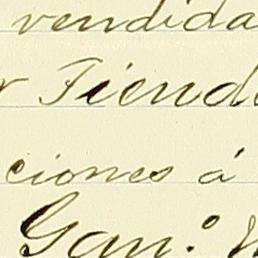 vendida
r Tiend
ciones á
Gan.º